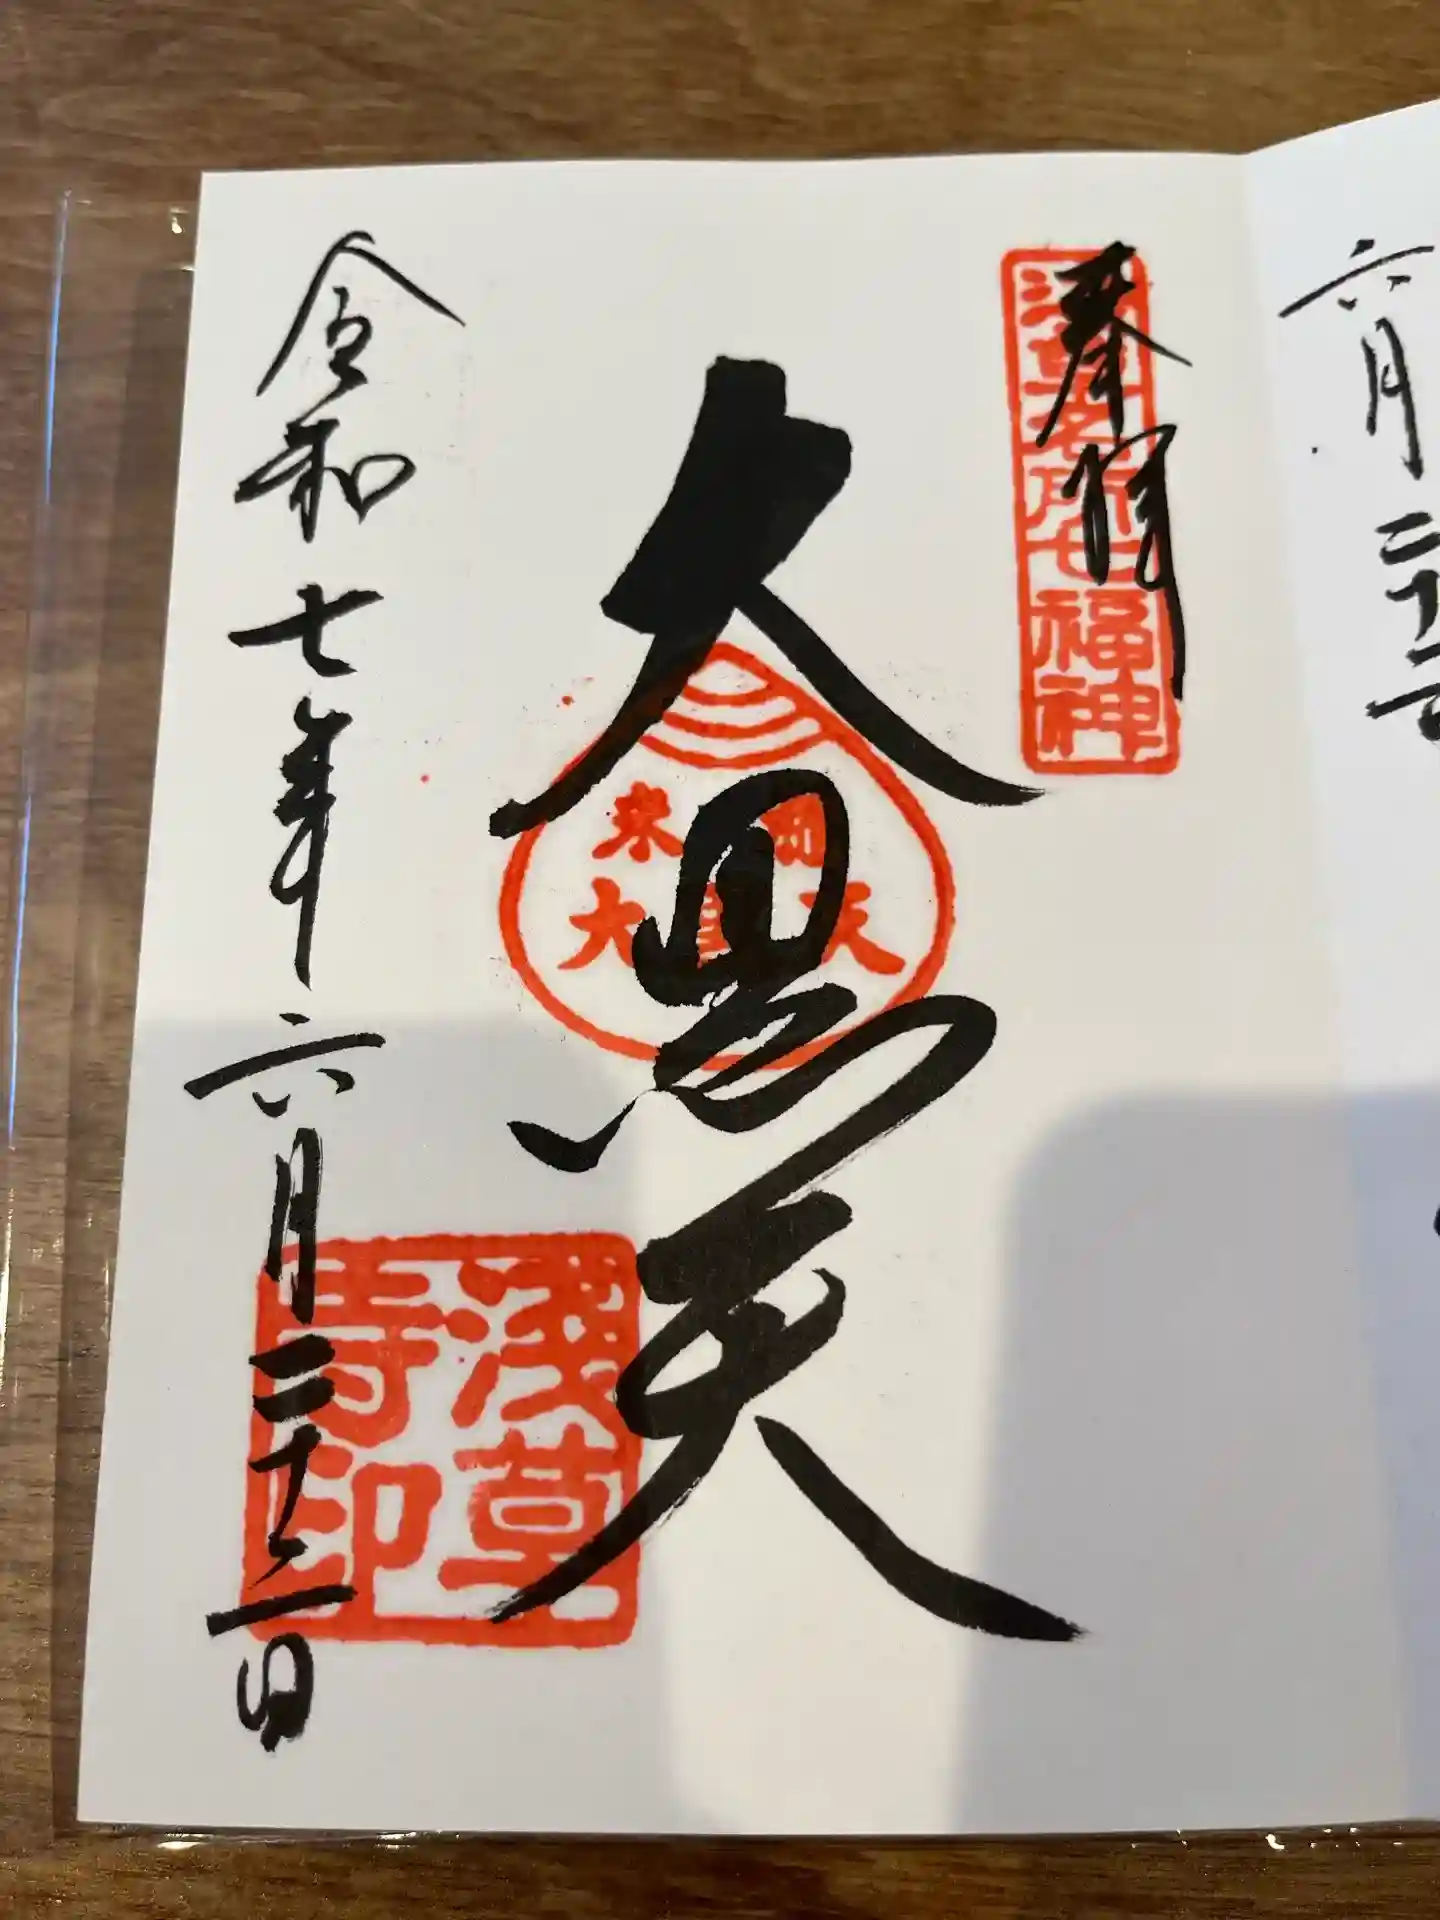 六月二十二日
奉拝
浅草名所七福神
大黒天
大黒天
浅草寺印
令和七年六月二十二日